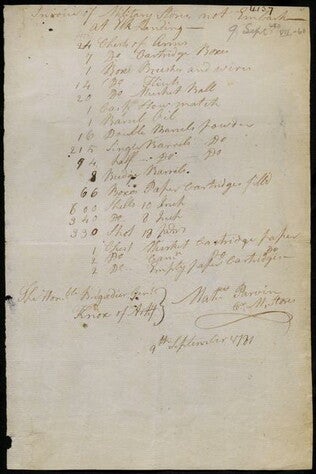 Invoice of Military Stores not Embark
at the Landing
9 Sept
24 Chests of Arms
7 Do Cartridge Boxes
1 Box Brushes and wire
14 Do Flints
20 Do Musket Ball
1 Cask Slow match
1 Barrel Oil
16 Double Barrels powder
215 Single Barrels Do
94 half Do Do
8 Budge Barrels
66 Boxes Paper Cartridges fill'd
800 Shells 10 Inch
340 Do 8 Inch
330 Shot 18 pdrs
1 Chest Musket Cartridge paper
2 Do Cann Do
2 Do Empty paper Cartridges
The Honble Brigadier Genl
Knox of Arty
Mathw Parvin
C. M. Stores
9th September 1781